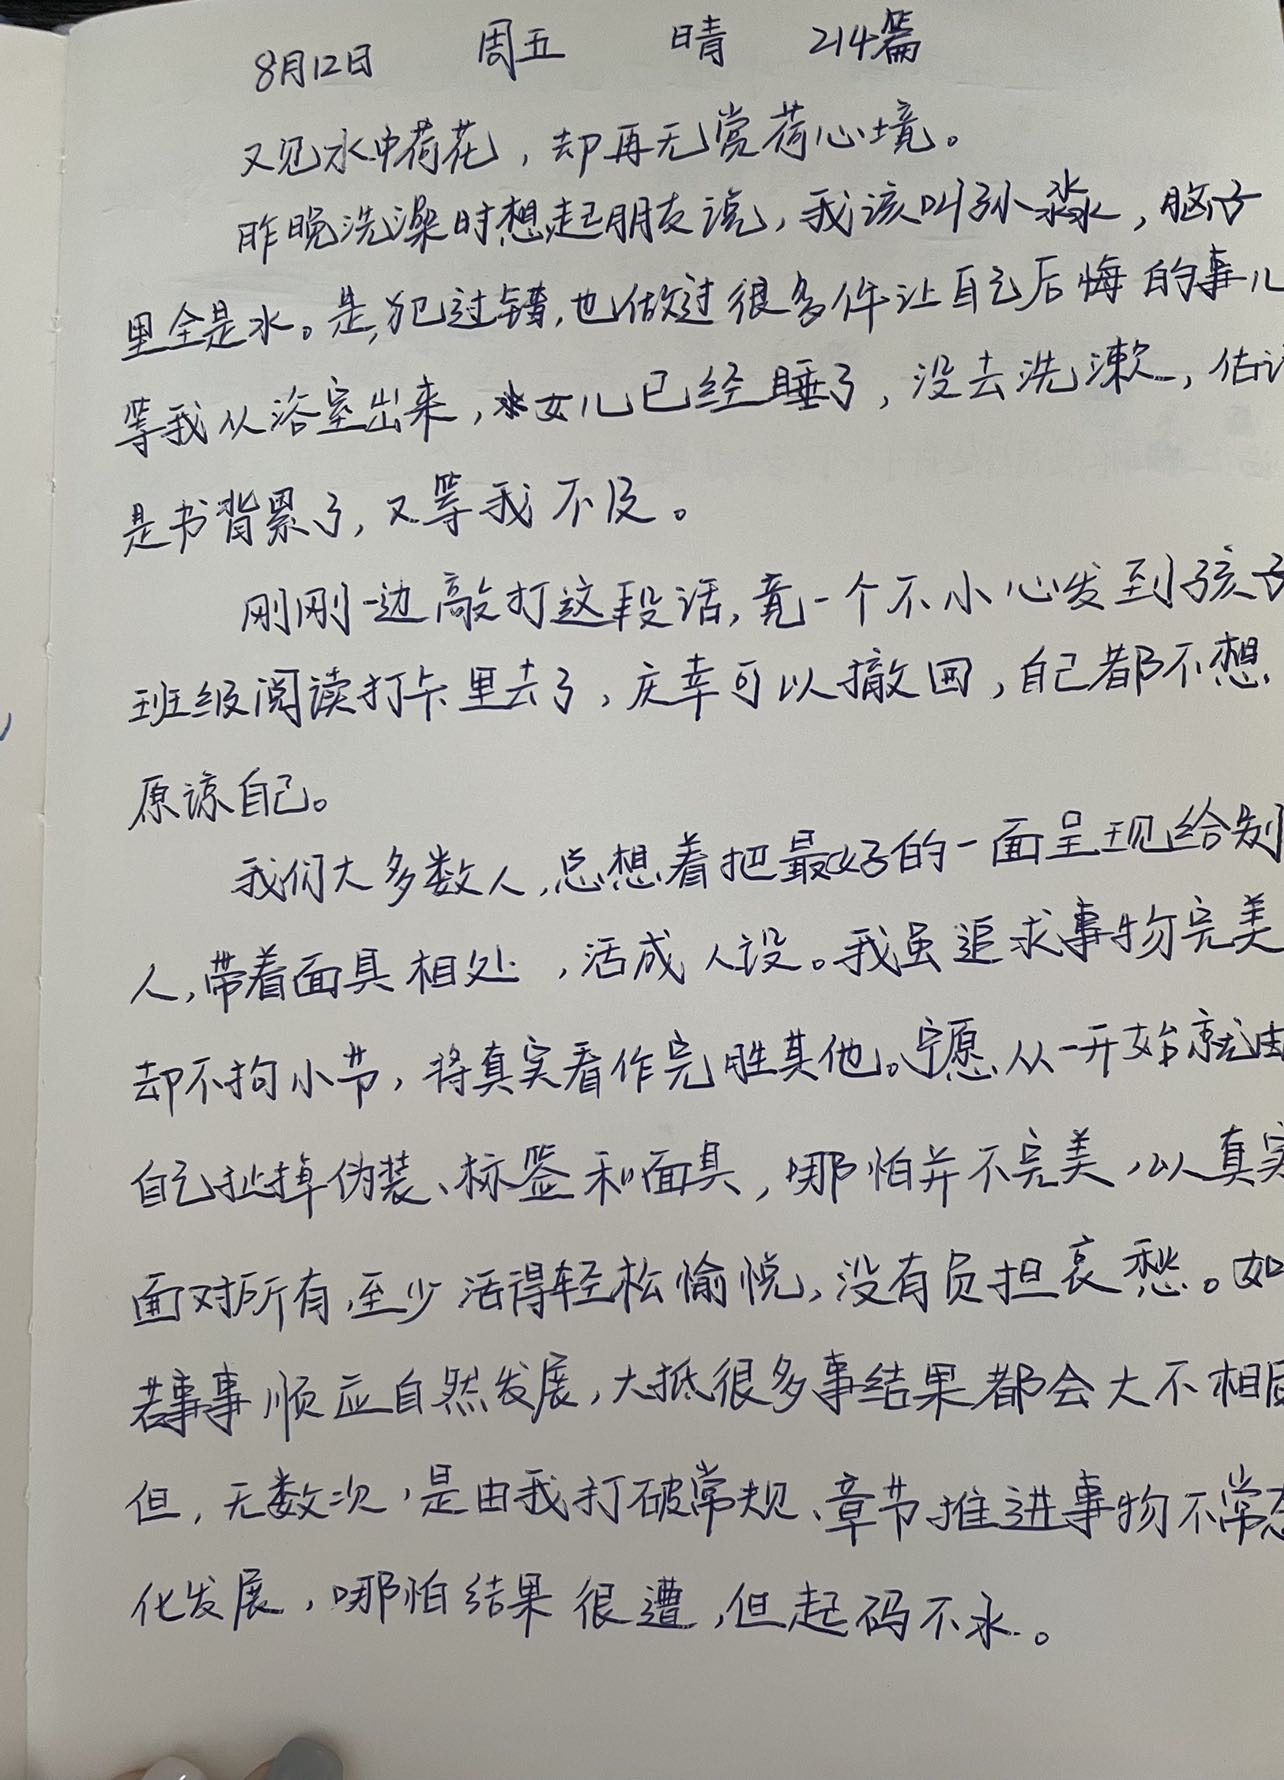 8月12日 周五 晴 214篇
又见水中荷花，却再无赏荷心境。
昨晚洗澡时想起朋友说，我该叫孙淼，脑子
里全是水。是，犯过错，也做过很多件让自己后悔的事儿
等我从浴室出来，女儿已经睡了，没去洗漱，估计
是书背累了，又等我不及。
刚刚一边敲打这段话，竟一个不小心发到孩子
班级阅读打卡里去了，庆幸可以撤回，自己都不想
原谅自己。
我们大多数人，总想着把最好的一面呈现给别
人，带着面具相处，活成人设。我虽追求事物完美
却不拘小节，将真实看作完胜其他。宁愿从一开始就由
自己扯掉伪装、标签和面具，哪怕并不完美，以真实
面对所有，至少活得轻松愉悦，没有负担哀愁。如
若事事顺应自然发展，大抵很多事结果都会大不相同
但，无数次，是由我打破常规、章节推进事物不常态
化发展，哪怕结果很遭，但起码不永。